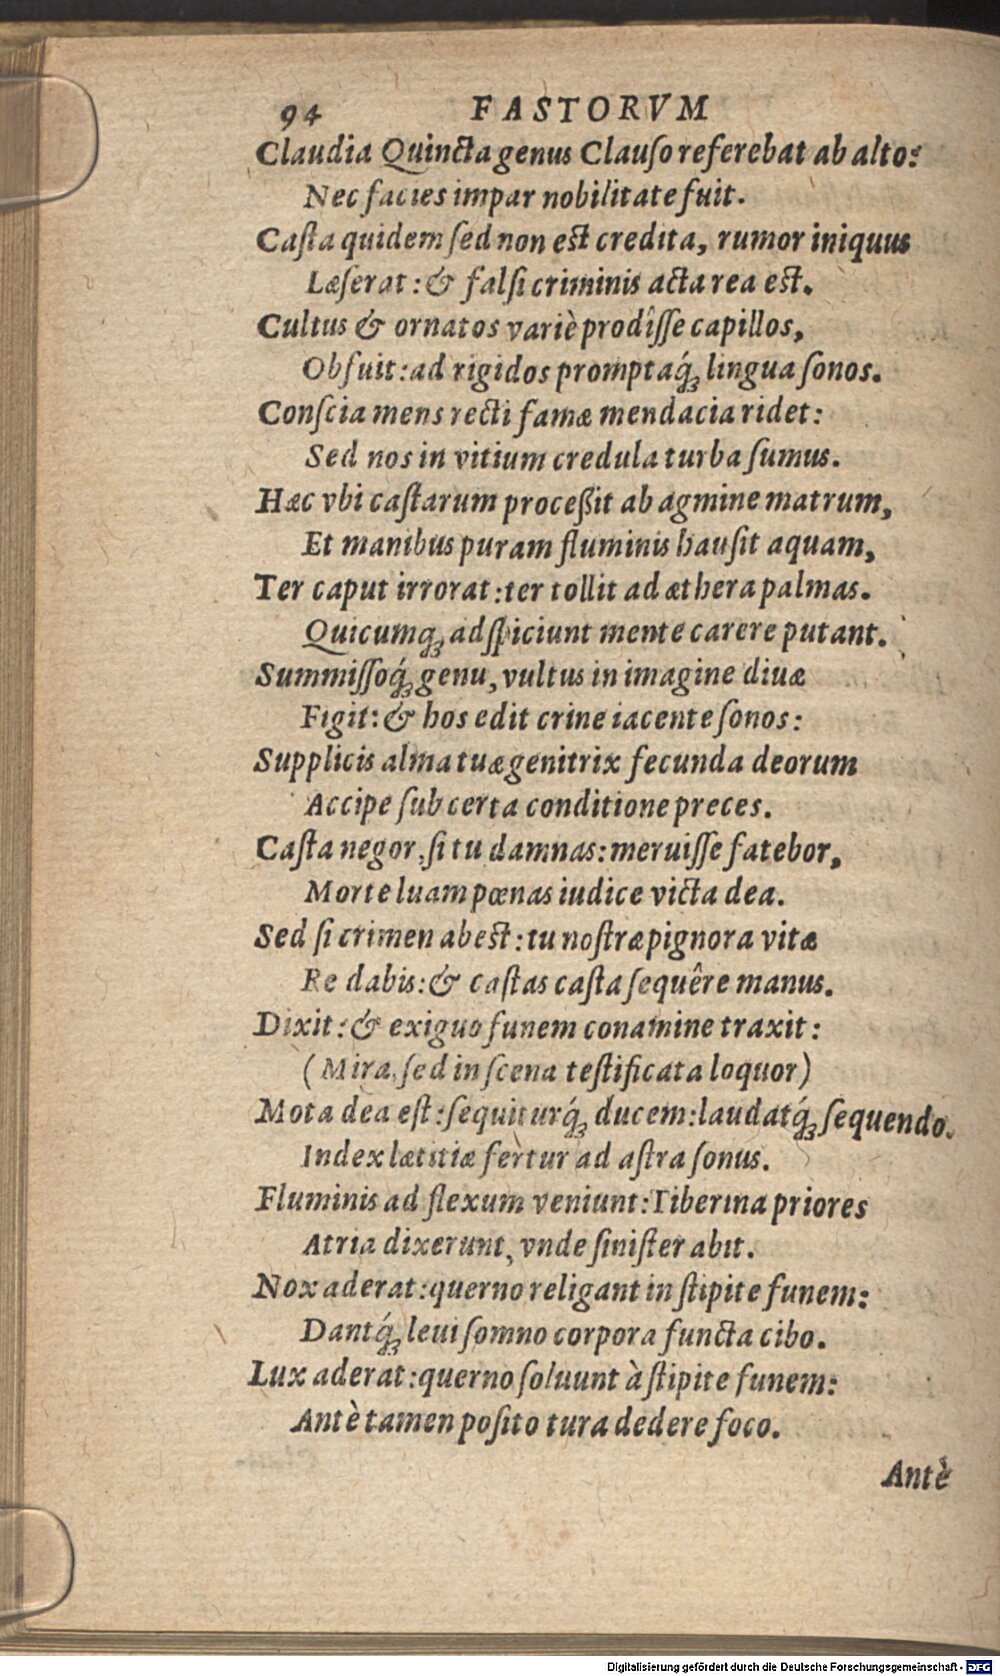 94 FASTORVM
Claudia Quincta genus Clauſo referebat ab alto:
Nec facies impar nobilitate fuit.
Caſta quidem ſed non eſt credita, rumor iniquus
Læſerat: & falſi criminis acta rea eſt.
Cultus & ornatos variè prodîſſe capillos,
Obfuit: ad rigidos promptaq́; lingua ſonos.
Conſcia mens recti famæ mendacia ridet:
Sed nos in vitium credula turba ſumus.
Hæc vbi caſtarum proceßit ab agmine matrum,
Et manibus puram fluminis hauſit aquam,
Ter caput irrorat: ter tollit ad æthera palmas.
Quicumq; adſpiciunt mente carere putant.
Summiſſoq́; genu, vultus in imagine diuæ
Figit: & hos edit crine iacente ſonos:
Supplicis alma tuæ genitrix fecunda deorum
Accipe ſub certa conditione preces.
Caſta negor, ſi tu damnas: meruiſſe fatebor,
Morte luam pœnas iudice victa dea.
Sed ſi crimen abeſt: tu noſtræ pignora vitæ
Re dabis: & caſtas caſta ſequêre manus.
Dixit: & exiguo funem conamine traxit:
(Mira, ſed in ſcena teſtificata loquor)
Mota dea eſt: ſequiturq́; ducem: laudatq́; ſequendo.
Index lætitiæ fertur ad aſtra ſonus.
Fluminis ad flexum veniunt: Tiberina priores
Atria dixerunt, vnde ſiniſter abit.
Nox aderat: querno religant in ſtipite funem:
Dantq́; leui ſomno corpora functa cibo.
Lux aderat: querno ſoluunt à ſtipite funem:
Antè tamen poſito tura dedere foco.
Antè
Digitalisierung gefördert durch die Deutsche Forschungsgemeinschaft - DFG